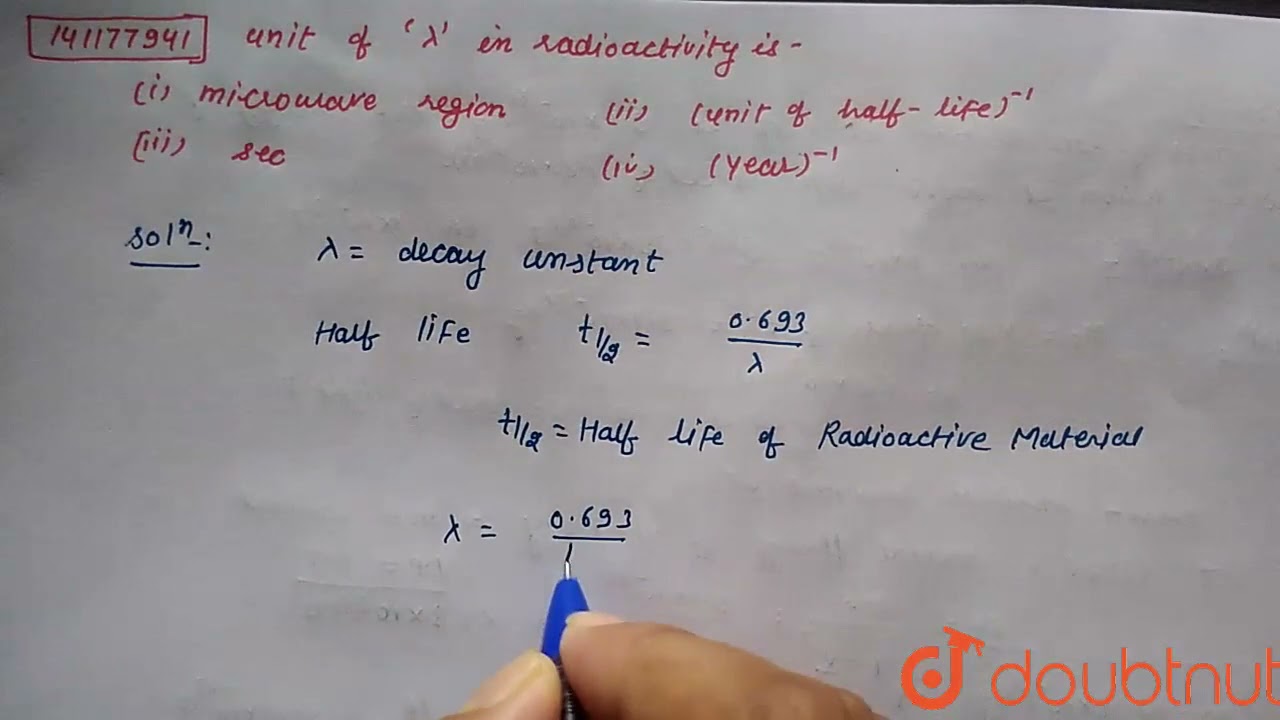 141177941 unit of 'λ' in radioactivity is -
(i) microwave region (ii) (unit of half-life)⁻¹
(iii) sec (iv) (Year)⁻¹
Solⁿ:
λ = decay constant
Half life t1/2 = 0.693/λ
t1/2 = Half life of Radioactive Material
λ = 0.693
doubtnut